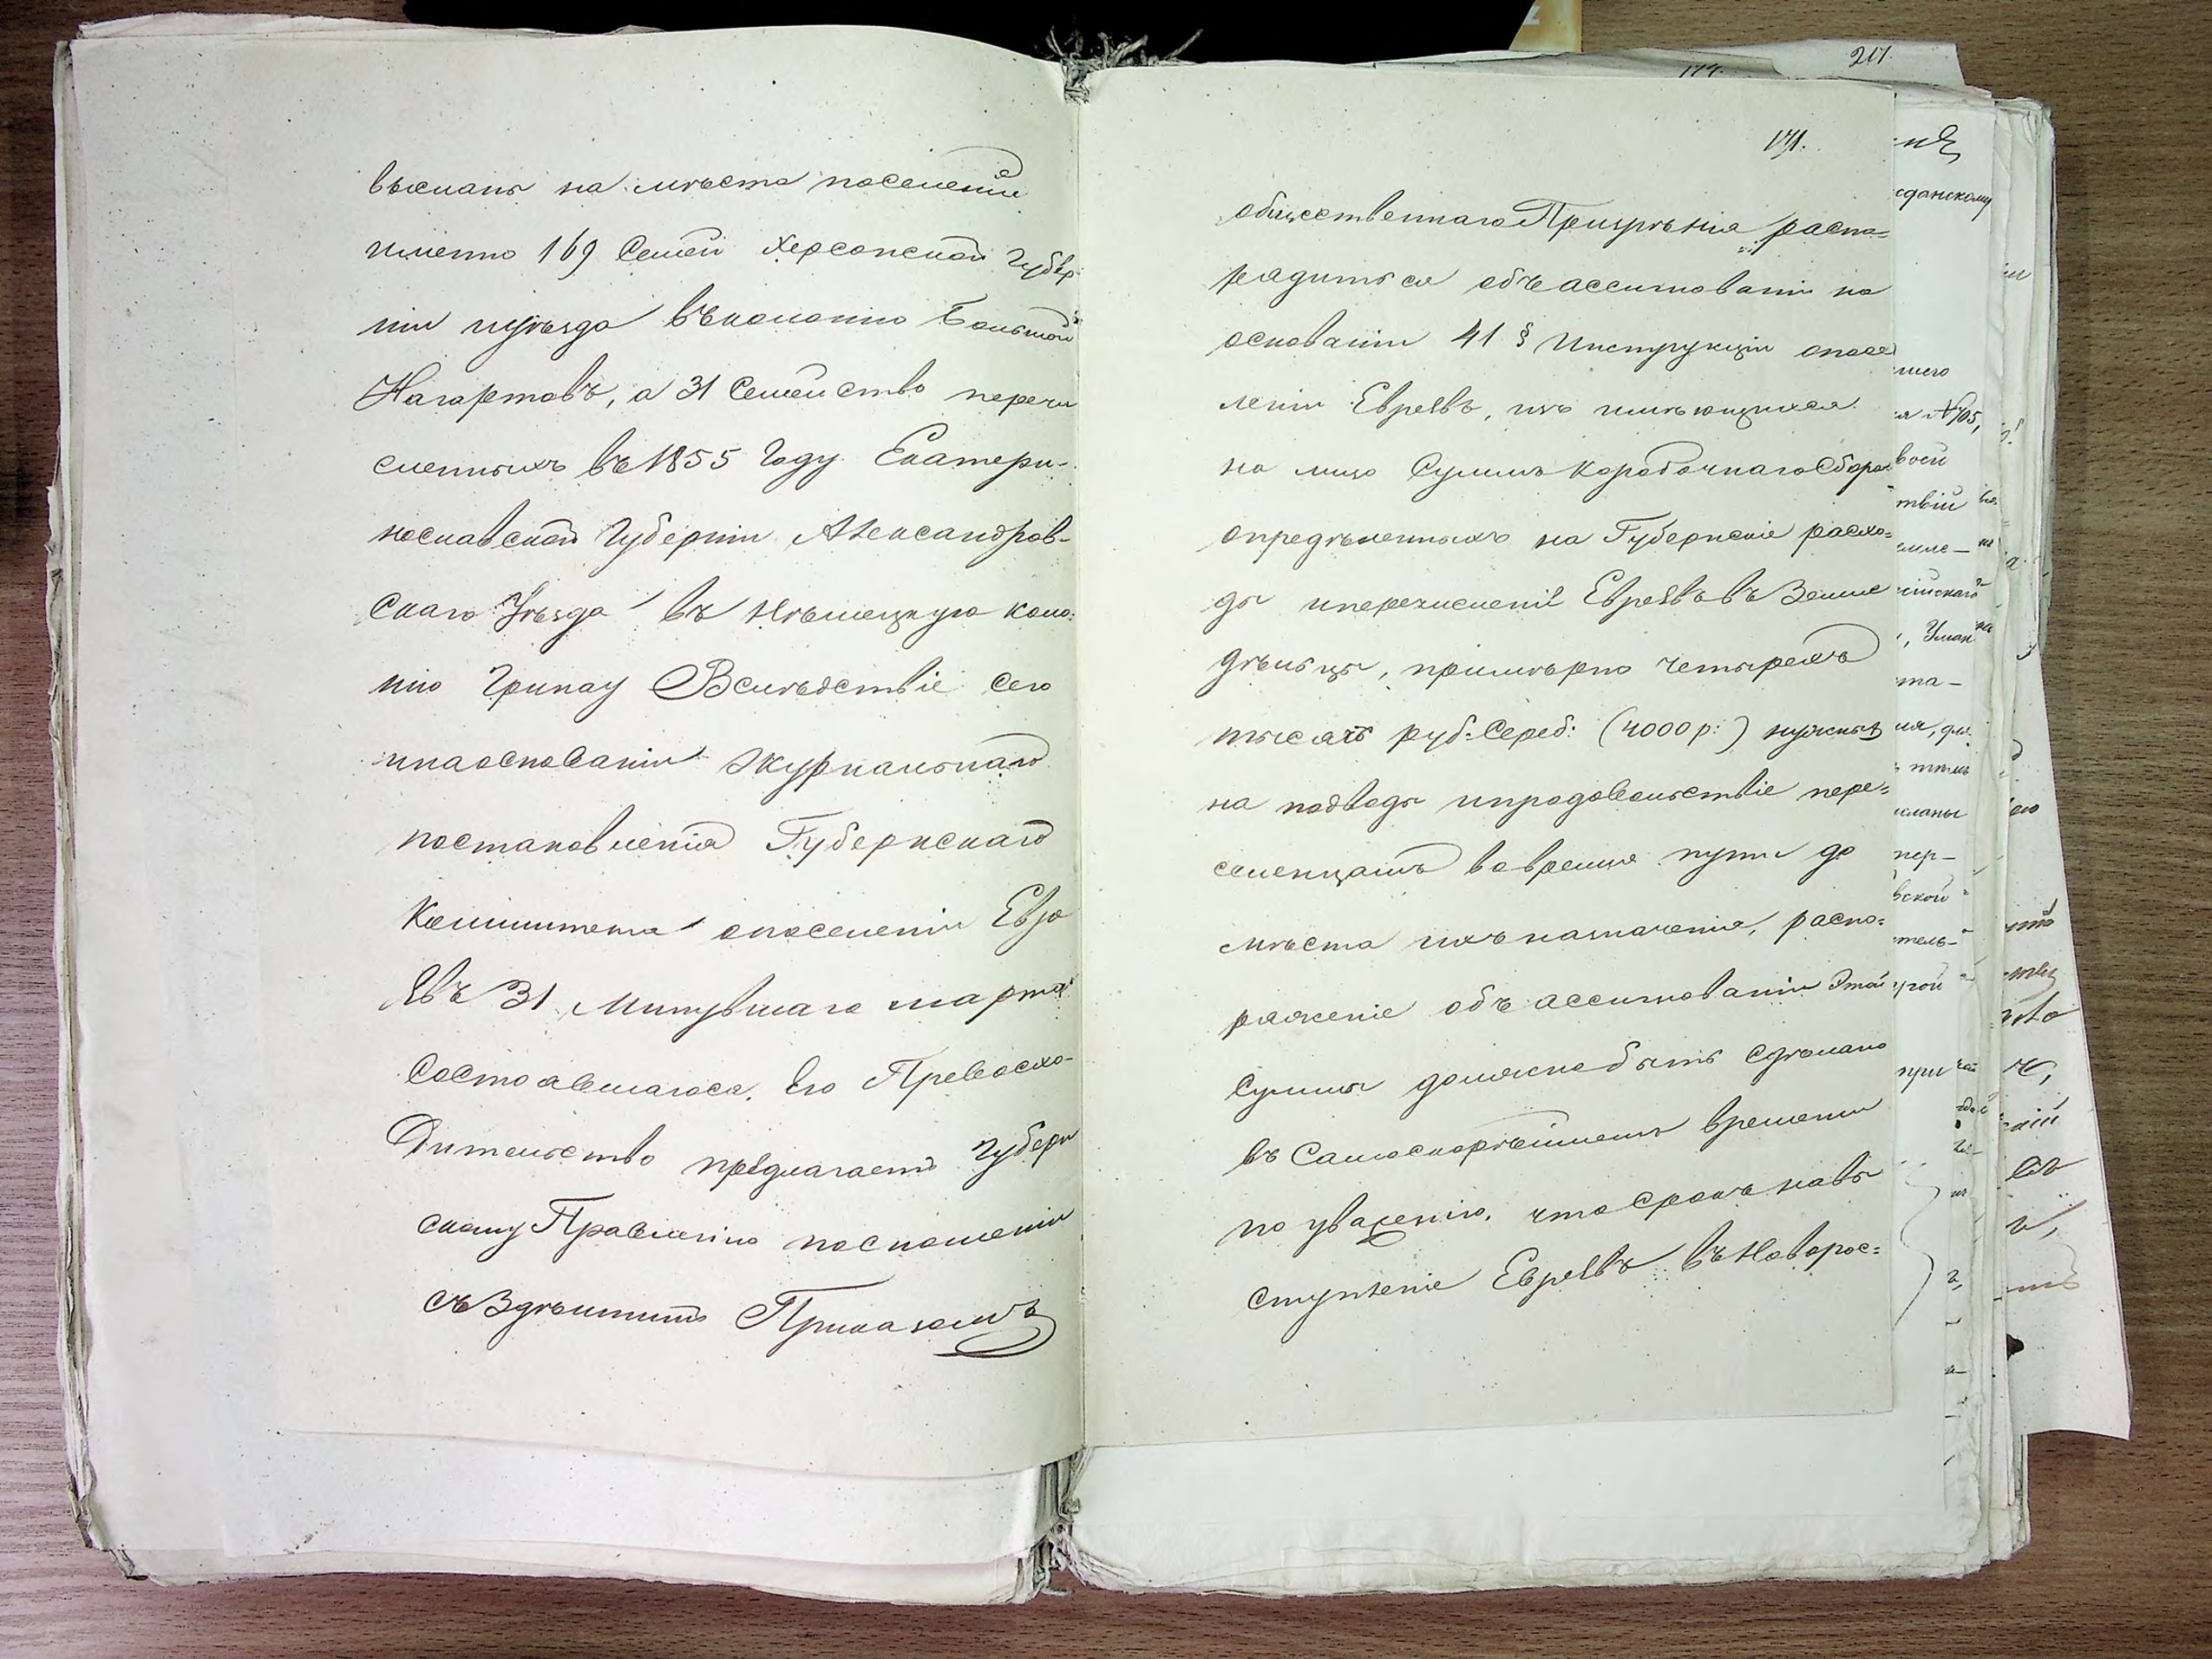 высланы на мѣста поселенія
именно 169 Семей Херсонской Губер-
ніи и уѣзда въ колонію Большой
Нагартовъ, а 31 Семейство перечи
сленныхъ въ 1855 Году Екатери-
нославской Губерніи Александров-
скаго Уѣзда въ Нѣмецкую коло-
нію Грунау Вслѣдствіе сего
и на основаніи журнальнаго
постановленія Губернскаго
Комитета о поселеніи Евре
евъ 31 Минувшаго марта
состоявшагося. Его Превосхо-
дительство предлагаетъ Губерн
скому Правленію по сношеніи
съ Здѣшнимъ Приказомъ
171.
общественнаго Призрѣнія распо=
рядиться объ ассигнованіи на
основаніи 41 § Инструкціи о посе
леніи Евреевъ, изъ имѣющихся
на лицо Суммъ Коробочнаго Сбора
опредѣленныхъ на Губернскіе расхо=
ды и перечисленіе Евреевъ въ Земле
дѣльцы, примѣрно четырехъ
тысячъ руб: Сереб: (4000 р:) нужныхъ
на подводы и продовольствіе пере=
селенцамъ во время пути до
мѣста ихъ назначенія, распо=
ряженіе объ ассигнованіи этой
Суммы должно быть сдѣлано
въ Самоскорѣйшемъ времени
по уваженію, что срокъ на вы
ступленіе Евреевъ въ Новорос=
217.